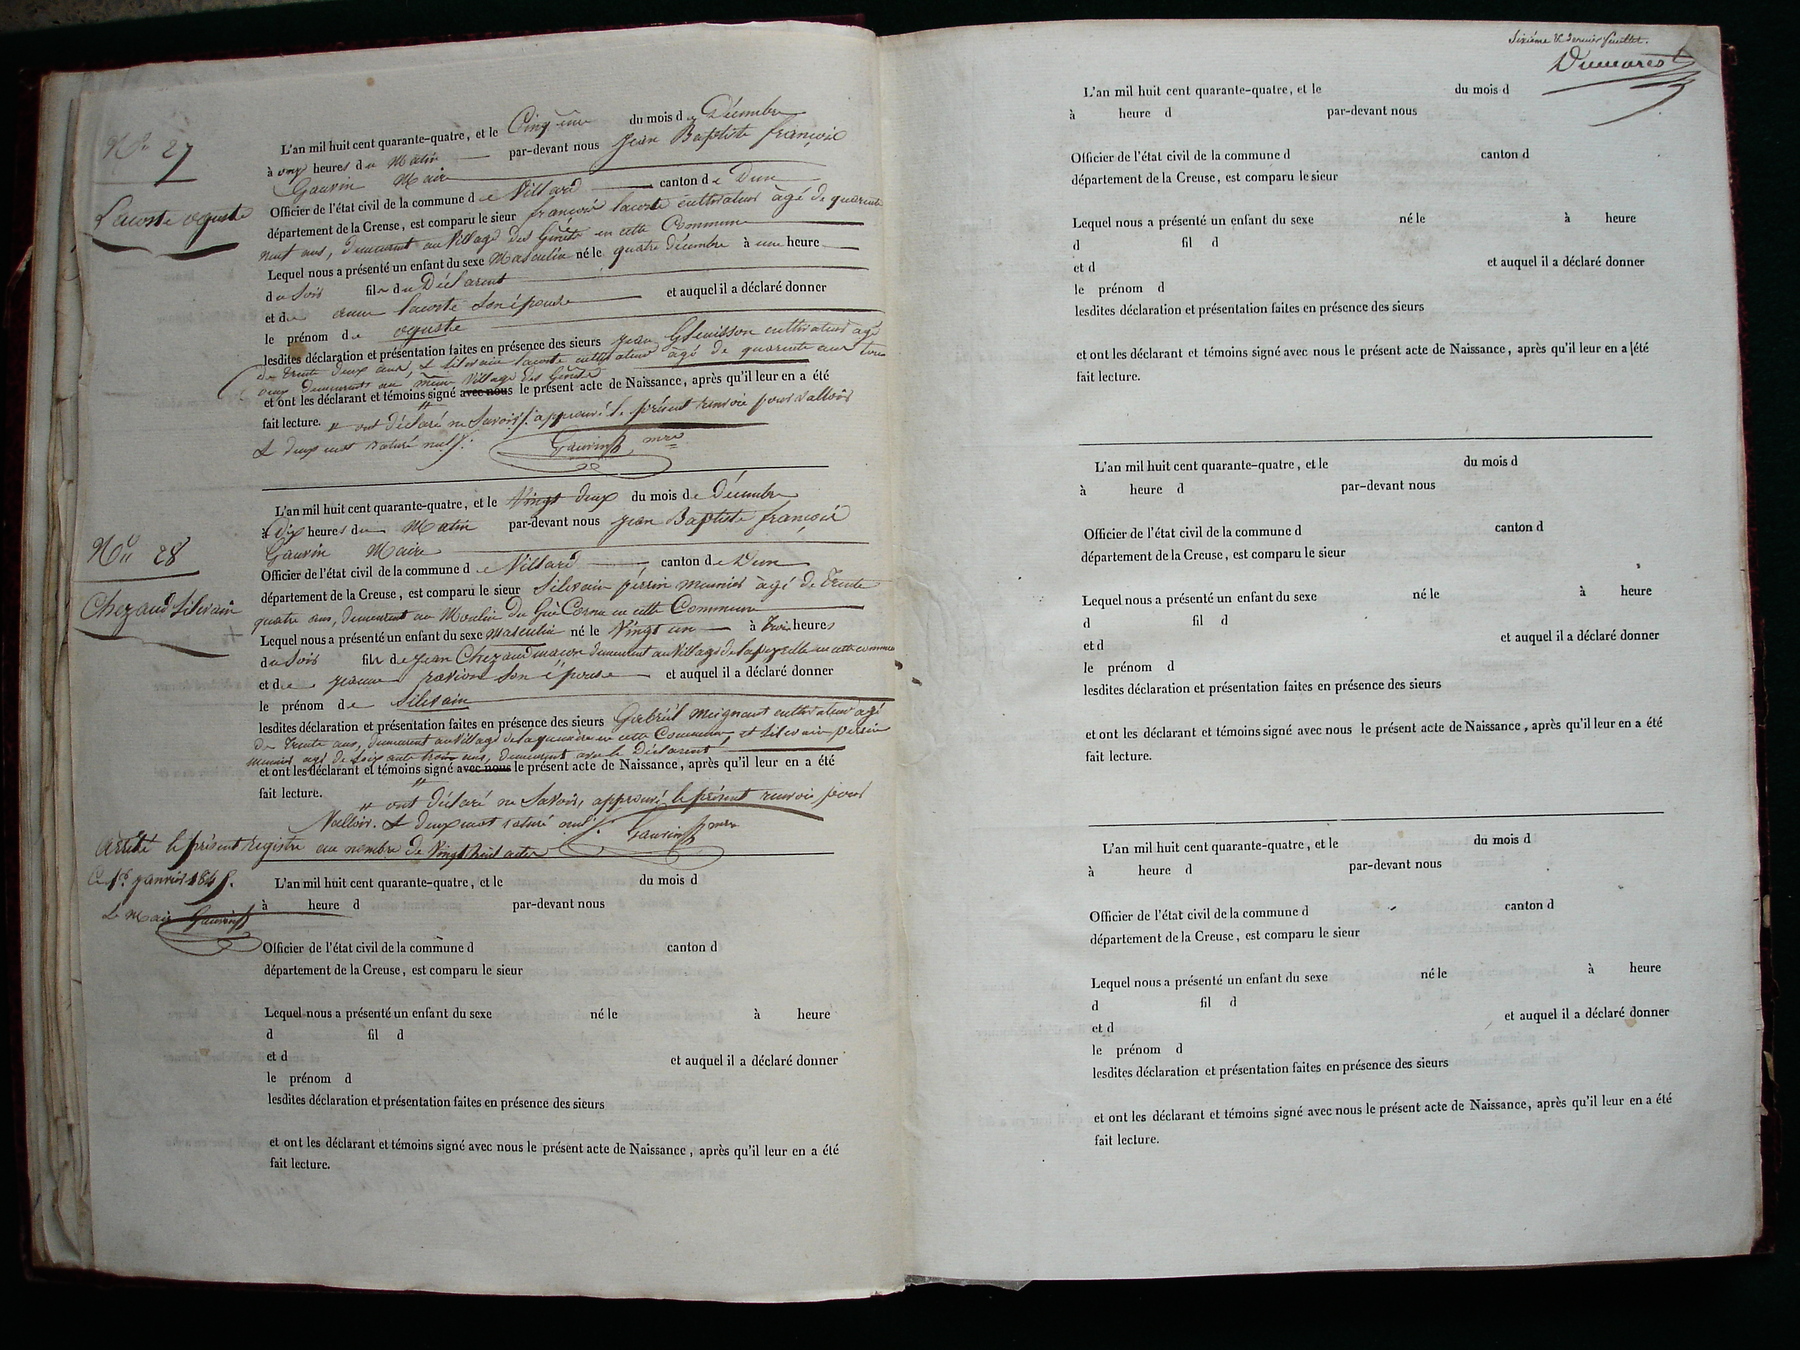 No 27
Lacoste oguste
L'an mil huit cent quarante-quatre, et le Cinq du mois de Décembre
à onze heures du Matin par-devant nous Jean Baptiste françois
Gauvin Maire
Officier de l'état civil de la commune de Villard canton de Dun
département de la Creuse, est comparu le sieur françois lacoste cultivateur âgé de quarente
neuf ans, demeurant au Village des Genêts en cette Commune
Lequel nous a présenté un enfant du sexe Masculin né le quatre décembre à une heure
du Soir fils du Déclarent
et de anne lacoste Son épouse et auquel il a déclaré donner
le prénom de oguste
lesdites déclaration et présentation faites en présence des sieurs jean Gluisson cultivateur agé
de trente deux ans, & Silvain lacoste cultivateur âgé de quarente ans tous
deux demeurants au même Village des Genêts
et ont les déclarant et témoins signé avec nous le présent acte de Naissance, après qu'il leur en a été
fait lecture. # ont déclaré ne Savoir, approuvé le présent renvoie pour valloir
& deux mot raturé nul.
Gauvin mre
No 28
Chezaud Silvain
L'an mil huit cent quarante-quatre, et le Vingt deux du mois de Décembre
à Dix heures du Matin par-devant nous jean Baptiste françois
Gauvin Maire
Officier de l'état civil de la commune de Villard canton de Dun
département de la Creuse, est comparu le sieur Silvain perrin meunier âgé de trente
quatre ans, demeurent au Moulin du Gué Cornu en cette Commune
Lequel nous a présenté un enfant du sexe masculin né le Vingt un à trois heures
du Soir fils de jean Chezaud maçon demeurent au Village de lapeyrelle en cette commune
et de jeanne ravion Son épouse et auquel il a déclaré donner
le prénom de Silvain
lesdites déclaration et présentation faites en présence des sieurs Gabriel meignant cultivateur agé
de trente ans, demeurent au Village de en cette Commune, et Silvain perrin
meunier agé de Soixante trois ans, demeurent avec le Déclarent
et ont les déclarant et témoins signé avec nous le présent acte de Naissance, après qu'il leur en a été
fait lecture.
# ont déclaré ne Savoir, approuvé le présent renvoie pour
Valloir. & deux mot raturé nul. Gauvin mre
Arrêté le présent registre au nombre de Vingt huit actes
Ce 1er janvier 1845.
Le Maire Gauvin
L'an mil huit cent quarante-quatre, et le du mois d
à heure d par-devant nous
Officier de l'état civil de la commune d canton d
département de la Creuse, est comparu le sieur
Lequel nous a présenté un enfant du sexe né le à heure
d fil d
et d et auquel il a déclaré donner
le prénom d
lesdites déclaration et présentation faites en présence des sieurs
et ont les déclarant et témoins signé avec nous le présent acte de Naissance, après qu'il leur en a été
fait lecture.
Sixième & dernier feuillet.
Dumarest
L'an mil huit cent quarante-quatre, et le du mois d
à heure d par-devant nous
Officier de l'état civil de la commune d canton d
département de la Creuse, est comparu le sieur
Lequel nous a présenté un enfant du sexe né le à heure
d fil d
et d et auquel il a déclaré donner
le prénom d
lesdites déclaration et présentation faites en présence des sieurs
et ont les déclarant et témoins signé avec nous le présent acte de Naissance, après qu'il leur en a été
fait lecture.
L'an mil huit cent quarante-quatre, et le du mois d
à heure d par-devant nous
Officier de l'état civil de la commune d canton d
département de la Creuse, est comparu le sieur
Lequel nous a présenté un enfant du sexe né le à heure
d fil d
et d et auquel il a déclaré donner
le prénom d
lesdites déclaration et présentation faites en présence des sieurs
et ont les déclarant et témoins signé avec nous le présent acte de Naissance, après qu'il leur en a été
fait lecture.
L'an mil huit cent quarante-quatre, et le du mois d
à heure d par-devant nous
Officier de l'état civil de la commune d canton d
département de la Creuse, est comparu le sieur
Lequel nous a présenté un enfant du sexe né le à heure
d fil d
et d et auquel il a déclaré donner
le prénom d
lesdites déclaration et présentation faites en présence des sieurs
et ont les déclarant et témoins signé avec nous le présent acte de Naissance, après qu'il leur en a été
fait lecture.